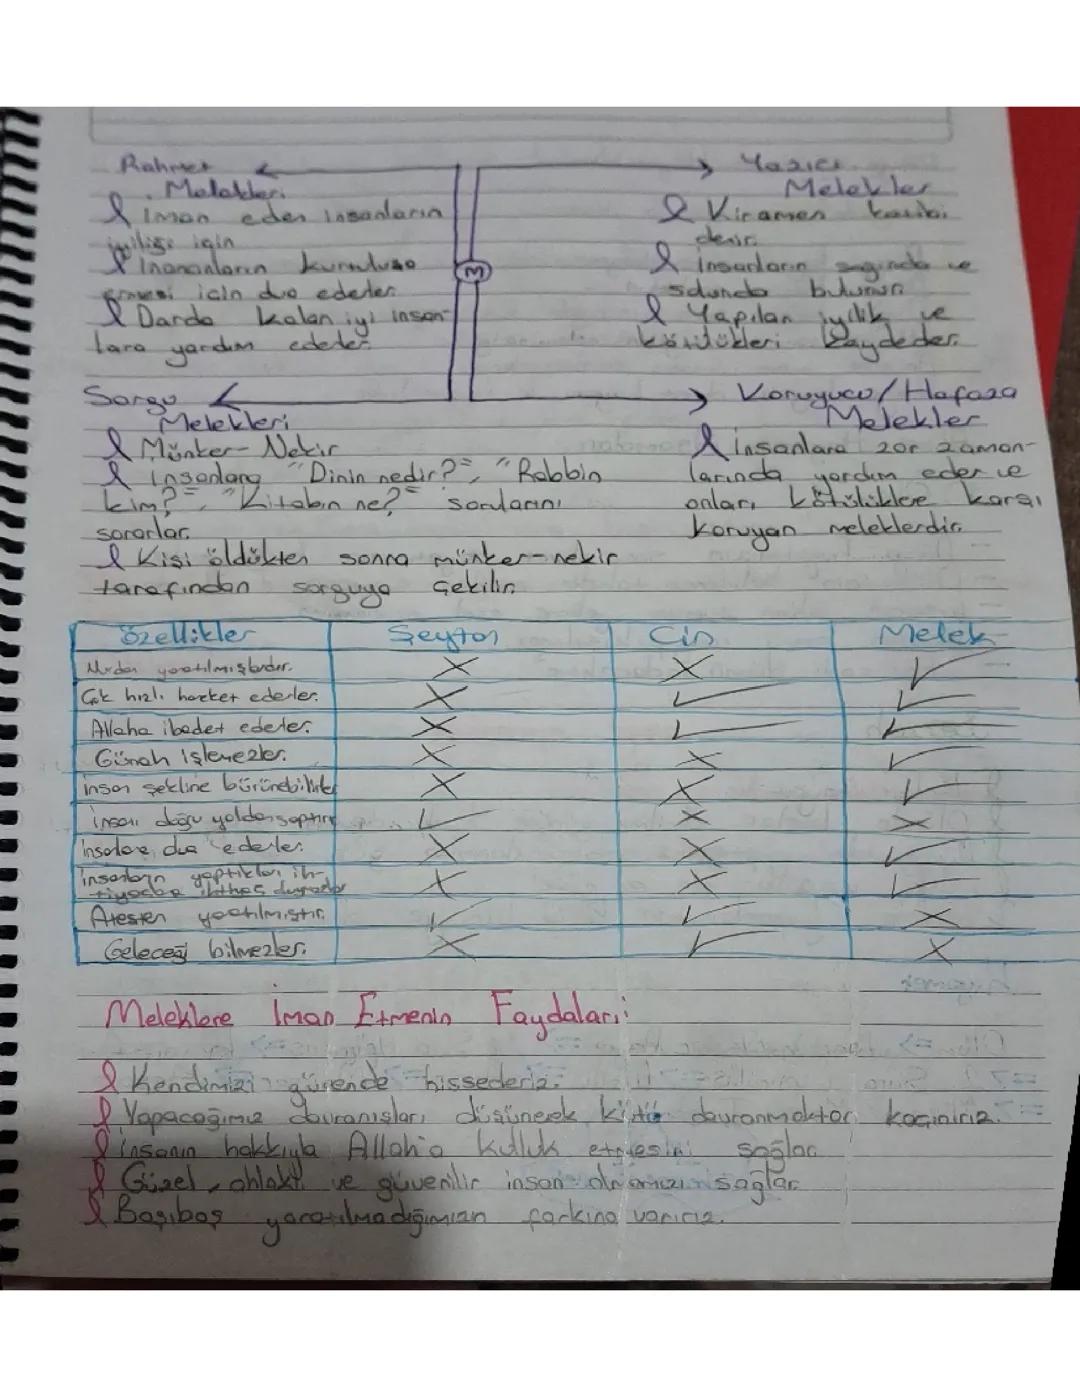 Rahmet
Melekleri
İman eden insanların
iyiliği için
İnananların kurtuluşa
ermesi için dua ederler.
Darda kalan iyi insan-
lara yardım ederler.
M
Yazıcı
Melekler
Kiramen katibi
denir.
İnsanların sağında ve
solunda bulunur.
Yapılan iyilik ve
kötülükleri kaydeder.
Sorgu
Melekleri
Münker-Nekir
İnsanlara "Dinin nedir?", "Rabbin
kim?", "Kitabın ne?" sorularını
sorarlar.
Kişi öldükten sonra münker-nekir
tarafından sorguya çekilir.
Koruyucu/Hafaza
Melekler
İnsanlara zor zaman-
larında yardım eder ve
onları kötülüklere karşı
koruyan meleklerdir.
Özellikler Şeytan Cin Melek
Nurdan yaratılmışlardır. X X ✓
Çok hızlı hareket ederler. X ✓ ✓
Allaha ibadet ederler. X ✓ ✓
Günah işlemezler. X X ✓
İnsan şekline bürünebilirler X X ✓
İnsanı doğru yoldan saptırır ✓ X X
İnsanlara dua ederler. X X ✓
İnsanların yaptıkları ih-
tiyaçlara ihtiyaç duymazlar X X ✓
Ateşten yaratılmıştır. ✓ ✓ X
Geleceği bilmezler. X ✓ X
Meleklere İman Etmenin Faydaları:
Kendimizi güvende hissederiz.
Yapacağımız davranışları düşünerek kötü davranmaktan kaçınırız.
İnsanın hakkıyla Allah'a kulluk etmesini sağlar.
Güzel ahlaklı ve güvenilir insan olmamızı sağlar.
Başıboş yaratılmadığımızın farkına varırız.